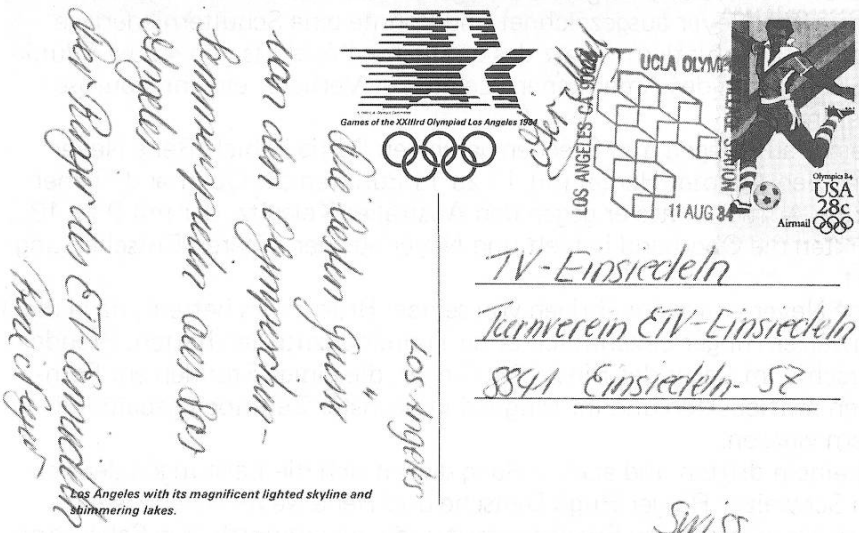 Games of the XXIIIrd Olympiad Los Angeles 1984
UCLA OLYMPI
LOS ANGELES CA
11 AUG 84
Olympics 84
USA
28c
Airmail
TV-Einsiedeln
Turnverein ETV-Einsiedeln
8841 Einsiedeln-SZ
Swiss
Los Angeles
von den
Sommerspielen aus Los
Angeles
der Jugend ETV Einsiedeln
Los Angeles with its magnificent lighted skyline and
shimmering lakes.